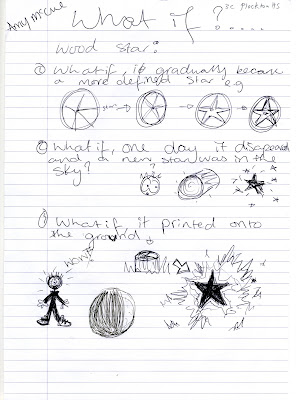 What if?......
3c Plockton HS
Wood Star:
① What if, it gradually became
a more defined Star e.g
② What if, one day it disapeared
and a new star was in the
sky?
What if it printed onto
the ground